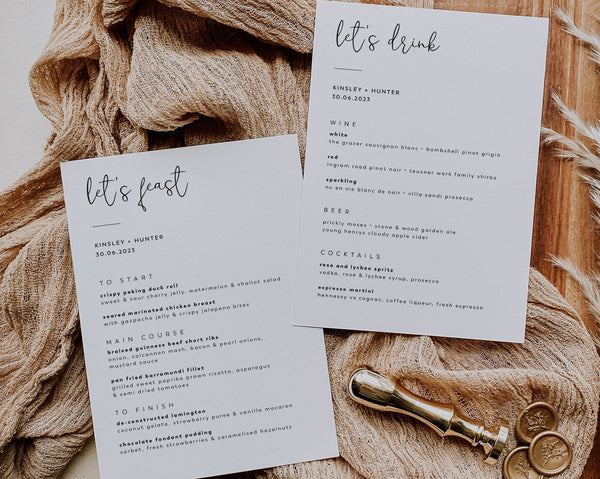 let's feast
KINSLEY + HUNTER
30.06.2023
TO START
crispy peking duck roll
sweet & sour cherry jelly, watermelon & shallot salad
seared marinated chicken breast
with gazpacho jelly & crispy jalapeno bites
MAIN COURSE
braised guinness beef short ribs
onion, colcannon mash, bacon & pearl onions,
mustard sauce
pan fried barramundi fillet
grilled sweet paprika prawn risotto, asparagus
& semi dried tomatoes
TO FINISH
de-constructed lamington
coconut gelato, strawberry puree & vanilla macaron
chocolate fondant pudding
sorbet, fresh strawberries & caramelised hazelnuts
let's drink
KINSLEY + HUNTER
30.06.2023
WINE
white
the grazer sauvignon blanc • bombshell pinot grigio
red
ingram road pinot noir • teusner work family shiraz
sparkling
nv en vie blanc de noir • villa sandi prosecco
BEER
prickly moses • stone & wood garden ale
young henrys cloudy apple cider
COCKTAILS
rose and lychee spritz
vodka, rose & lychee syrup, prosecco
espresso martini
hennessy vs cognac, coffee liqueur, fresh espresso